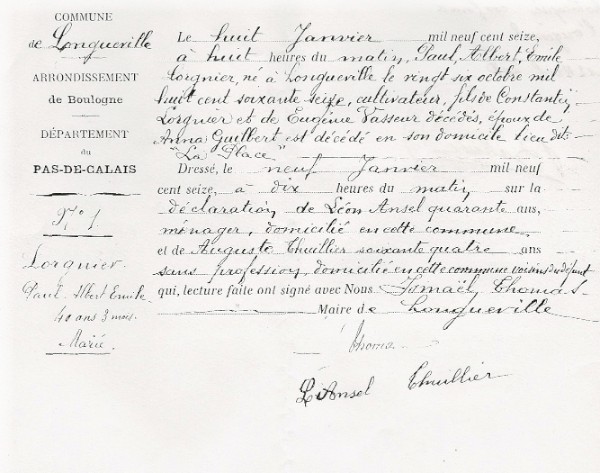 COMMUNE
de Longueville
ARRONDISSEMENT
de Boulogne
DÉPARTEMENT
du
PAS-DE-CALAIS
N° 1
Lorgnier
Paul Albert Emile
40 ans 3 mois.
Marié.
Le huit Janvier mil neuf cent seize,
à huit heures du matin, Paul, Albert, Emile
Lorgnier, né à Longueville le vingt six octobre mil
huit cent soixante seize, cultivateur, fils de Constantin
Lorgnier et de Eugénie Vasseur décédés, époux de
Anna Guilbert est décédé en son domicile lieu dit
"La Place"
Dressé, le neuf Janvier mil neuf
cent seize, à dix heures du matin sur la
déclaration de Léon Ansel quarante ans,
ménager, domicilié en cette commune
et de Auguste Thuillier soixante quatre ans
sans profession, domicilié en cette commune voisins du défunt
qui, lecture faite ont signé avec Nous Ismaël Thomas
Maire de Longueville
Thomas
L. Ansel Thuillier